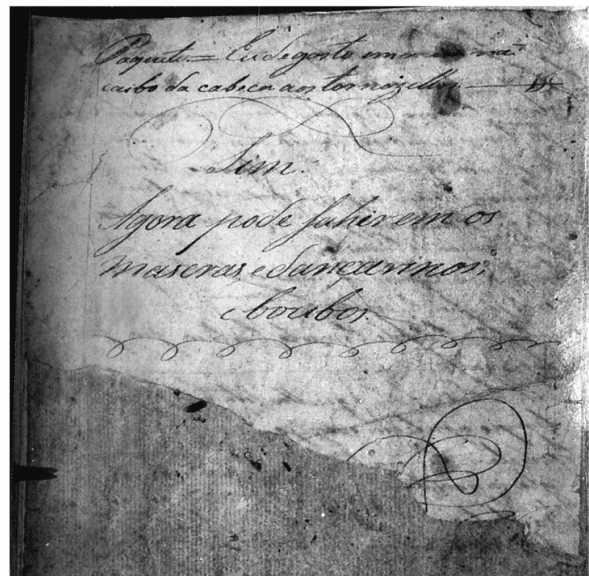 Paqueta = Eu de gosto
caibo da cabeca aos tornozellos
Sim.
Agora pode sahirem os
mascras, e dançarinos,
e boubos.